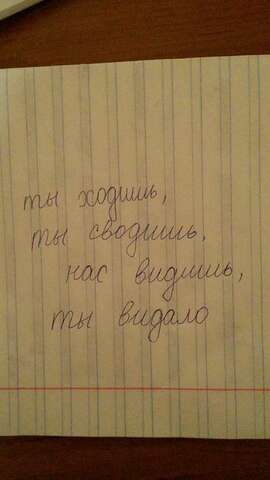 ты ходишь,
ты сводишь,
нас видишь,
ты видало